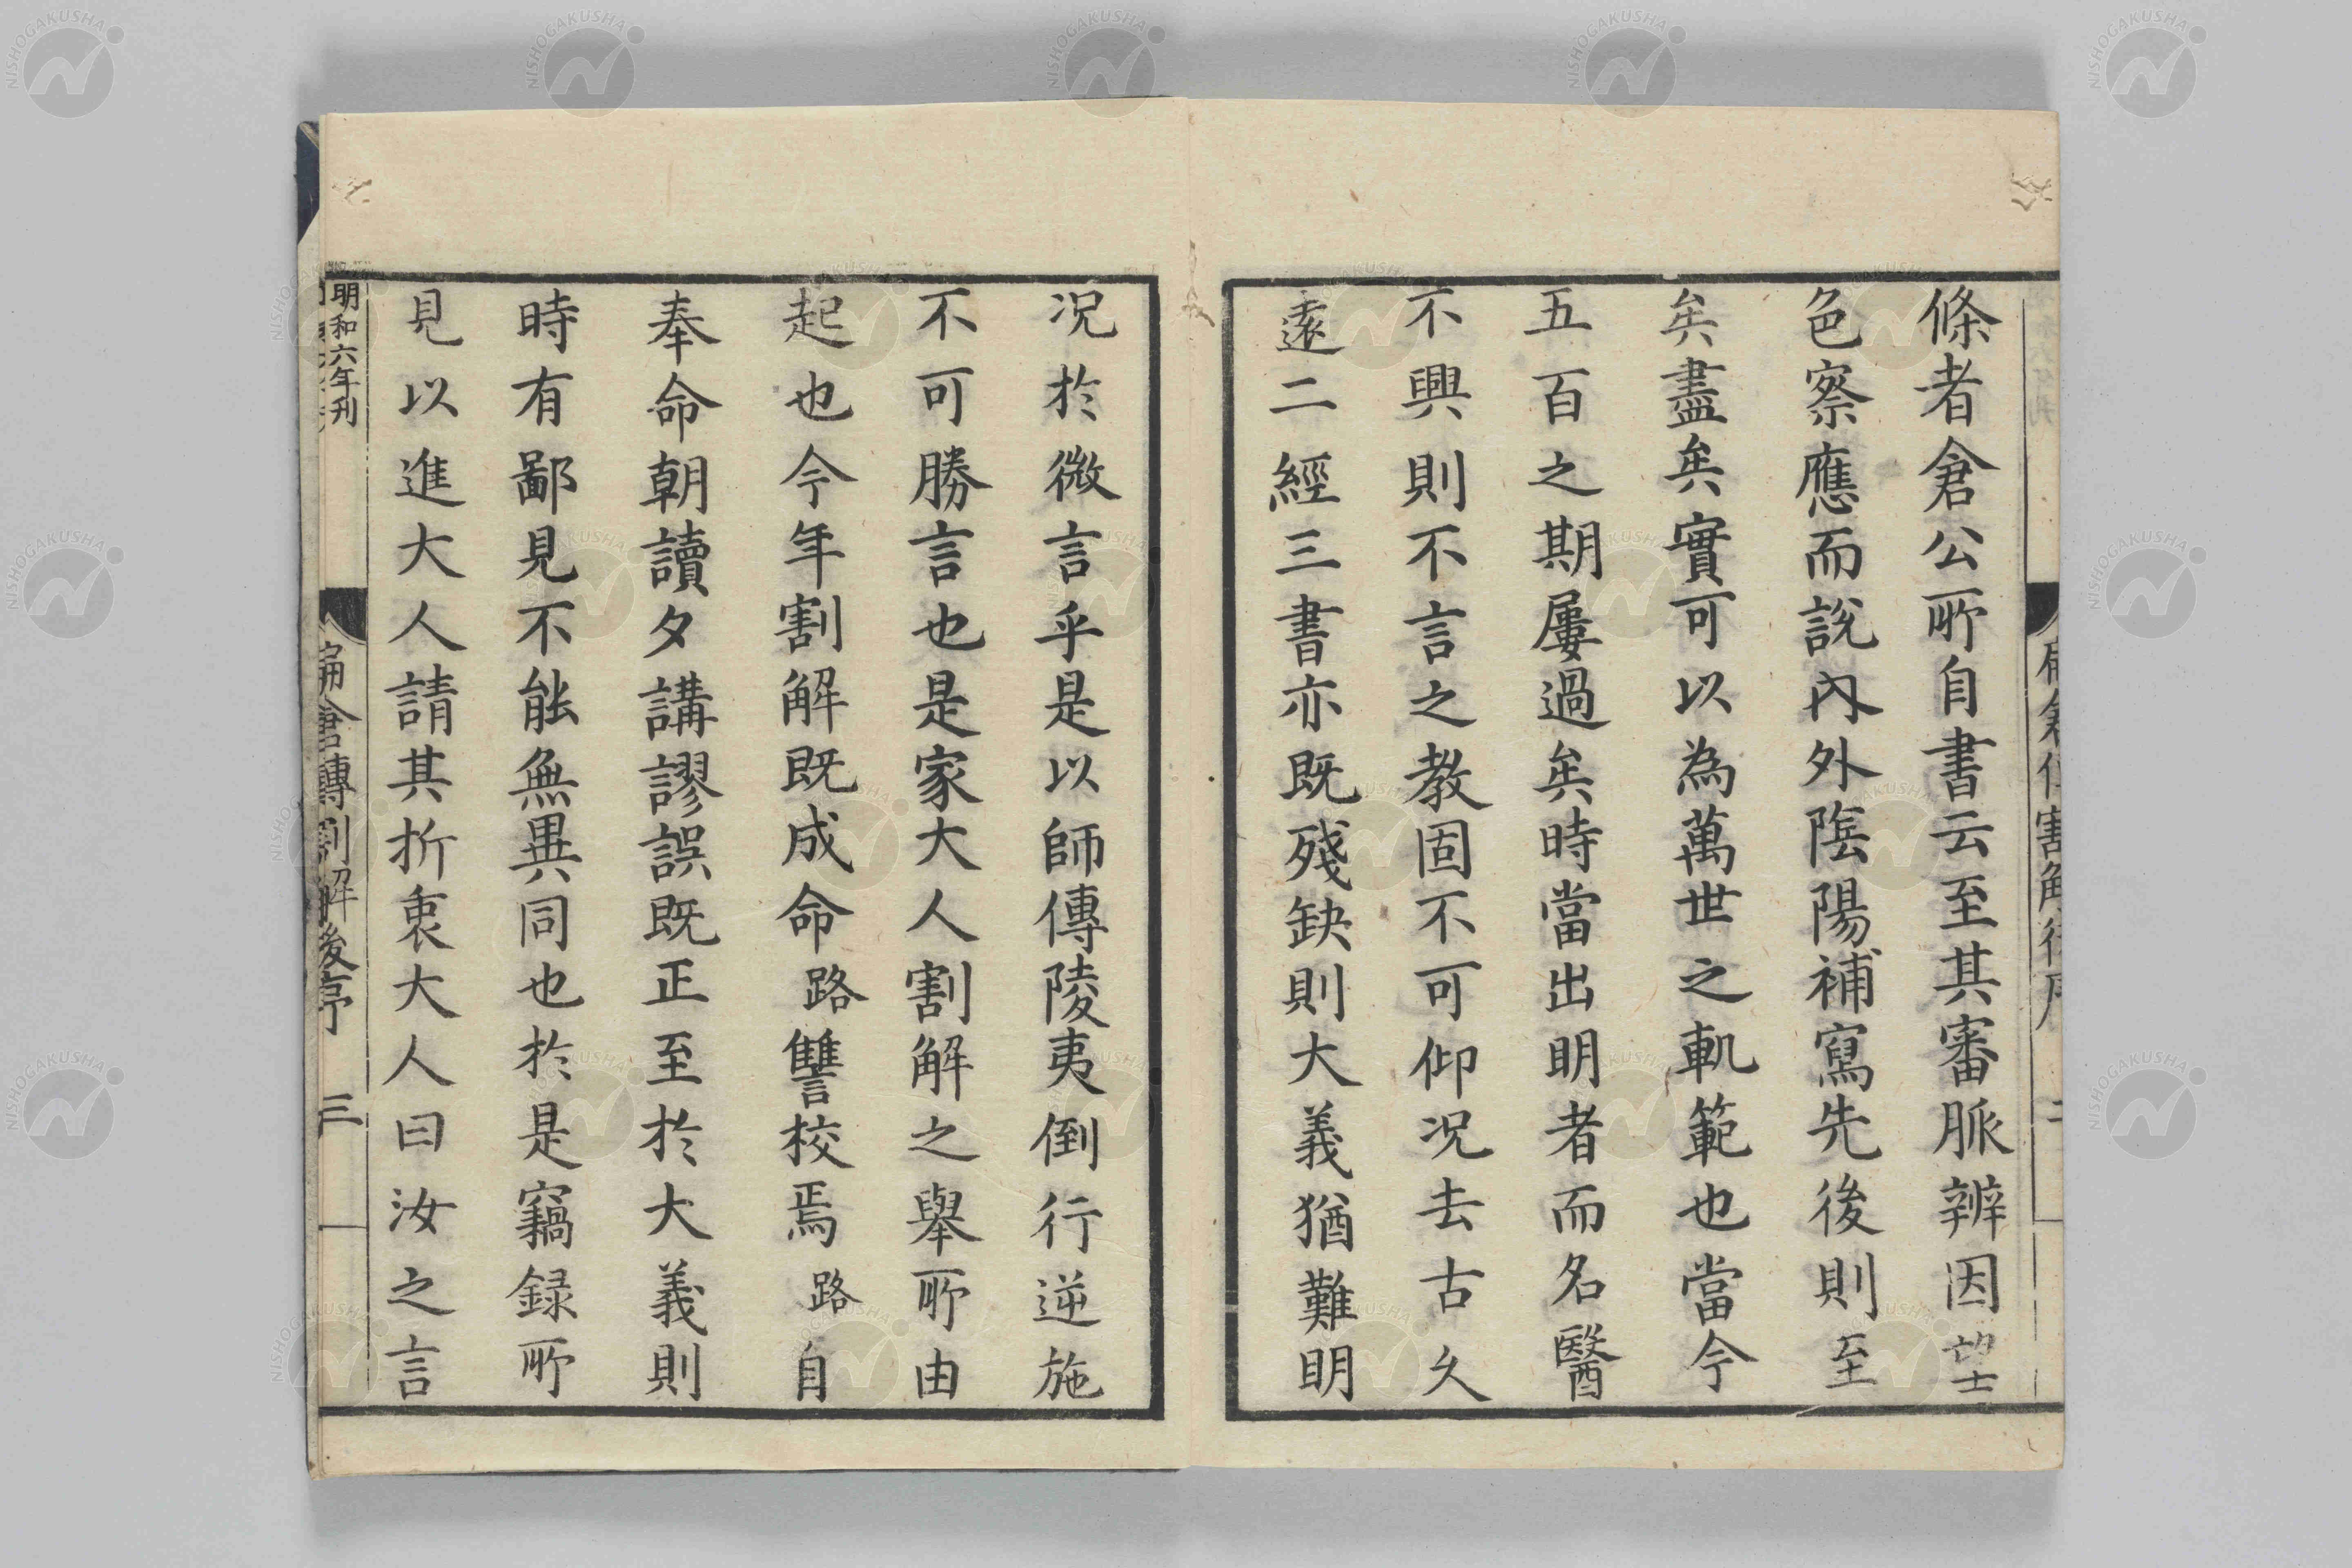 條者倉公所自書云至其審脈辨因望
色察應而說內外陰陽補寫先後則至
矣盡矣實可以為萬世之軌範也當今
五百之期屢過矣時當出明者而名醫
不興則不言之教固不可仰况去古久
遠二經三書亦既殘缺則大義猶難明
况於微言乎是以師傳陵夷倒行逆施
不可勝言也是家大人割解之舉所由
起也今年割解既成命路讐校焉路自
奉命朝讀夕講謬誤既正至於大義則
時有鄙見不能無異同也於是竊録所
見以進大人請其折衷大人曰汝之言
明和六年刊
扁倉傳割解後序 三
NISHOGAKUSHA